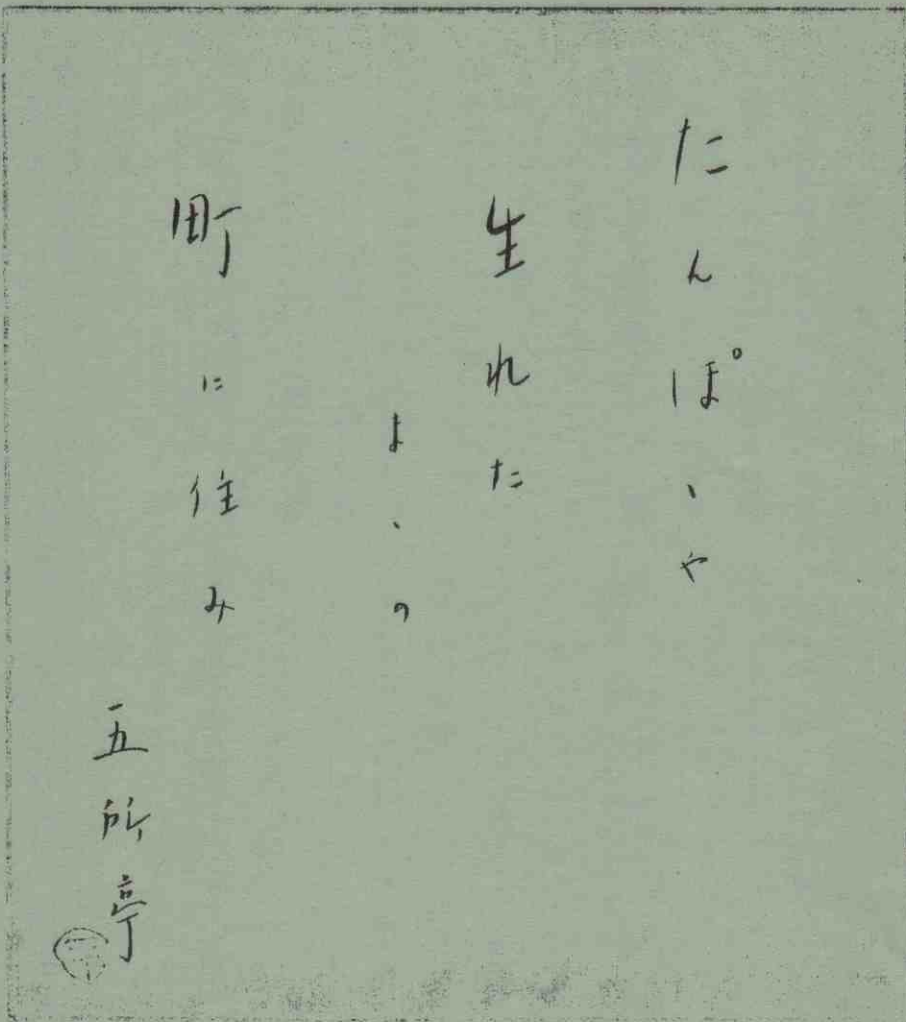 たんぽゝや
生れた
まゝの
町に住み
五所亭